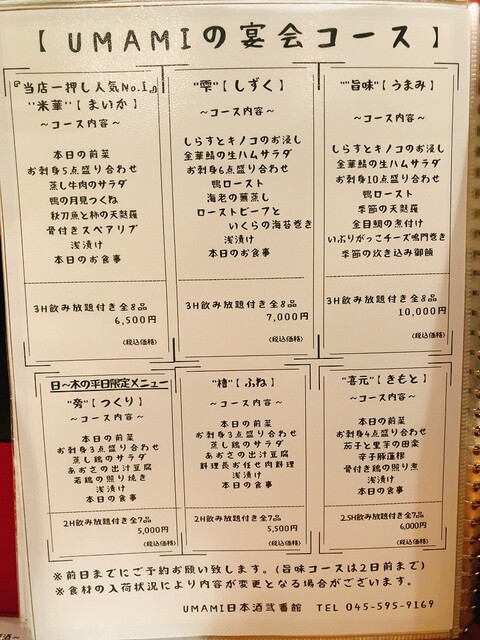 【 UMAMIの宴会コース 】
『当店一押し人気No.1』
"米華"【 まいか 】
～コース内容～
本日の前菜
お刺身5点盛り合わせ
蒸し牛肉のサラダ
鴨の月見つくね
秋刀魚と柿の天麩羅
骨付きスペアリブ
浅漬け
本日のお食事
3H飲み放題付き全8品
6,500円
(税込価格)
"雫"【 しずく 】
～コース内容～
しらすとキノコのお浸し
金華鯖の生ハムサラダ
お刺身6点盛り合わせ
鴨ロースト
海老の蕪蒸し
ローストビーフと
いくらの海苔巻き
浅漬け
本日のお食事
3H飲み放題付き全8品
7,000円
(税込価格)
"旨味"【 うまみ 】
～コース内容～
しらすとキノコのお浸し
金華鯖の生ハムサラダ
お刺身10点盛り合わせ
鴨ロースト
季節の天麩羅
金目鯛の煮付け
いぶりがっこチーズ鳴門巻き
季節の炊き込み御飯
3H飲み放題付き全8品
10,000円
(税込価格)
日～木の平日限定メニュー
"旁"【 つくり 】
～コース内容～
本日の前菜
お刺身3点盛り合わせ
蒸し鶏のサラダ
あおさの出汁豆腐
若鶏の照り焼き
浅漬け
本日の食事
2H飲み放題付き全7品
5,000円
(税込価格)
"槽"【 ふね 】
～コース内容～
本日の前菜
お刺身3点盛り合わせ
蒸し鶏のサラダ
あおさの出汁豆腐
料理長お任せ肉料理
浅漬け
本日の食事
2H飲み放題付き全7品
5,500円
(税込価格)
"喜元"【 きもと 】
～コース内容～
本日の前菜
お刺身4点盛り合わせ
茄子と里芋の田楽
辛子豚蓮根
骨付き鶏の照り煮
浅漬け
本日の食事
2.5H飲み放題付き全7品
6,000円
(税込価格)
※前日までにご予約お願い致します。(旨味コースは2日前まで)
※食材の入荷状況により内容が変更となる場合がございます。
UMAMI日本酒弐番館 TEL 045-595-9169